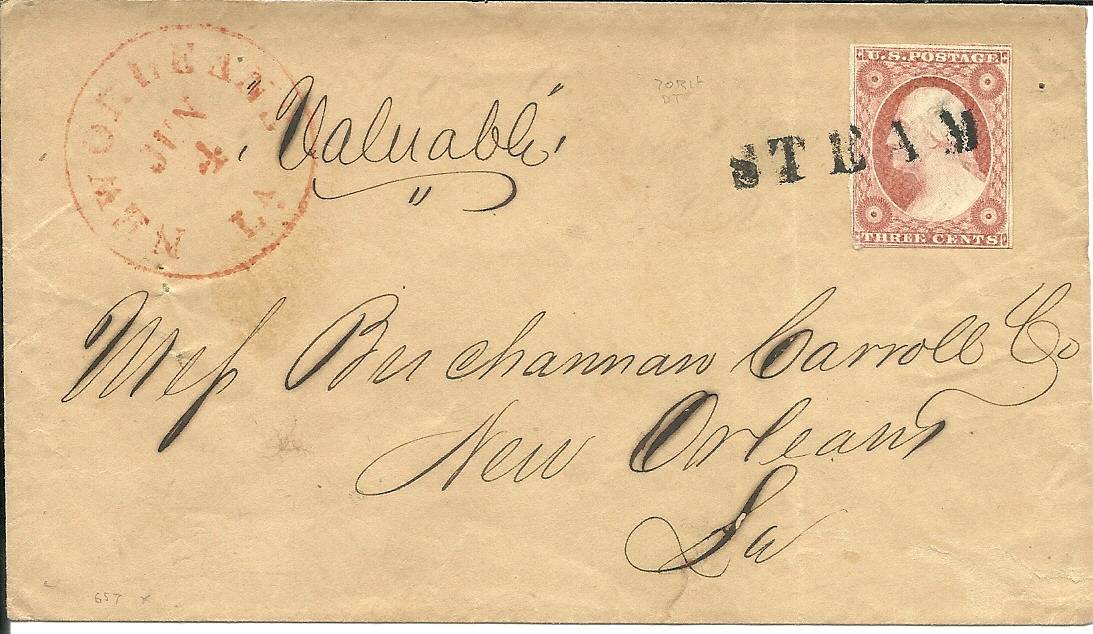 NEW ORLEANS LA
JUN
4
"Valuable"
U.S. POSTAGE
THREE CENTS
STEAM
Mess Buchannan Carroll & Co
New Orleans
La
657 x